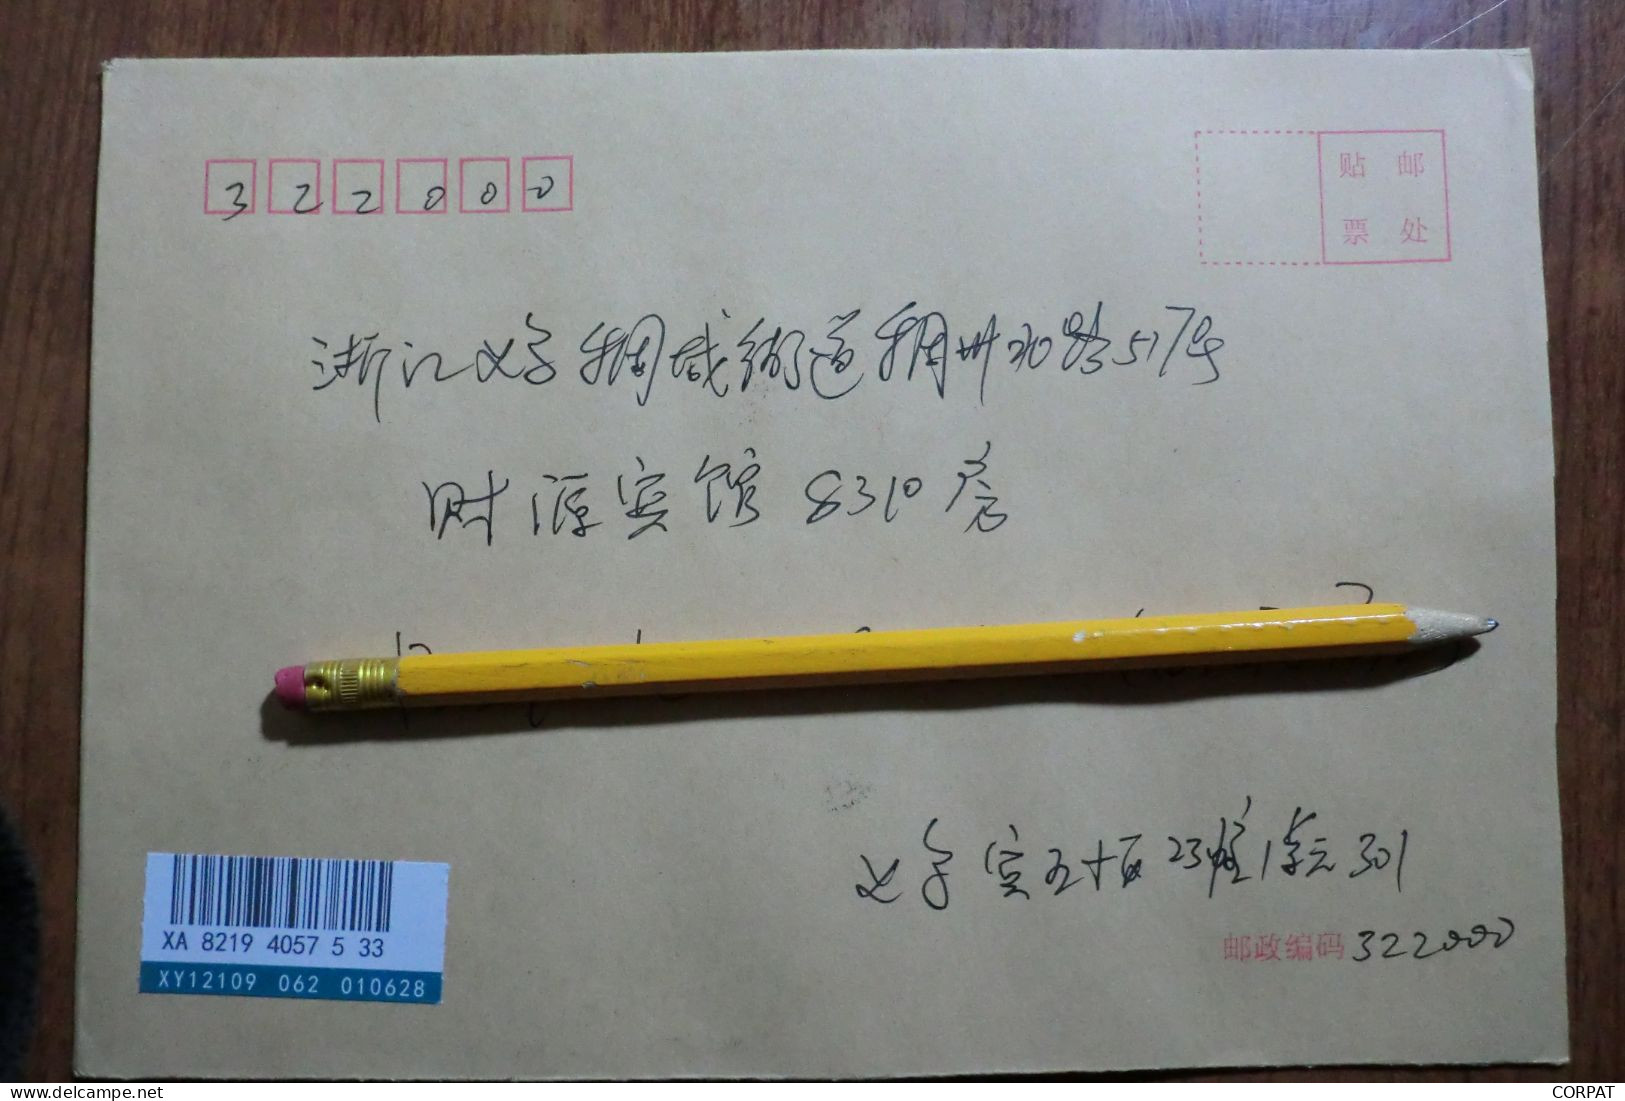 322000
贴 邮
票 处
浙江义乌稠城街道稠州北路517号
财源宾馆 8310房
义乌宾王 23幢1单元301
邮政编码 322000
XA 8219 4057 5 33
XY12109 062 010628
www.delcampe.net
CORPAT